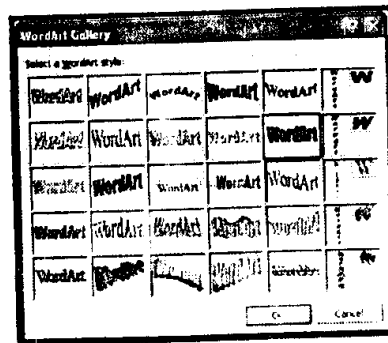 WordArt Gallery
Select a WordArt style:
WordArt WordArt WordArt WordArt WordArt W
WordArt WordArt WordArt WordArt WordArt W
WordArt WordArt WordArt WordArt WordArt W
WordArt WordArt WordArt WordArt WordArt
WordArt WordArt WordArt
Cancel